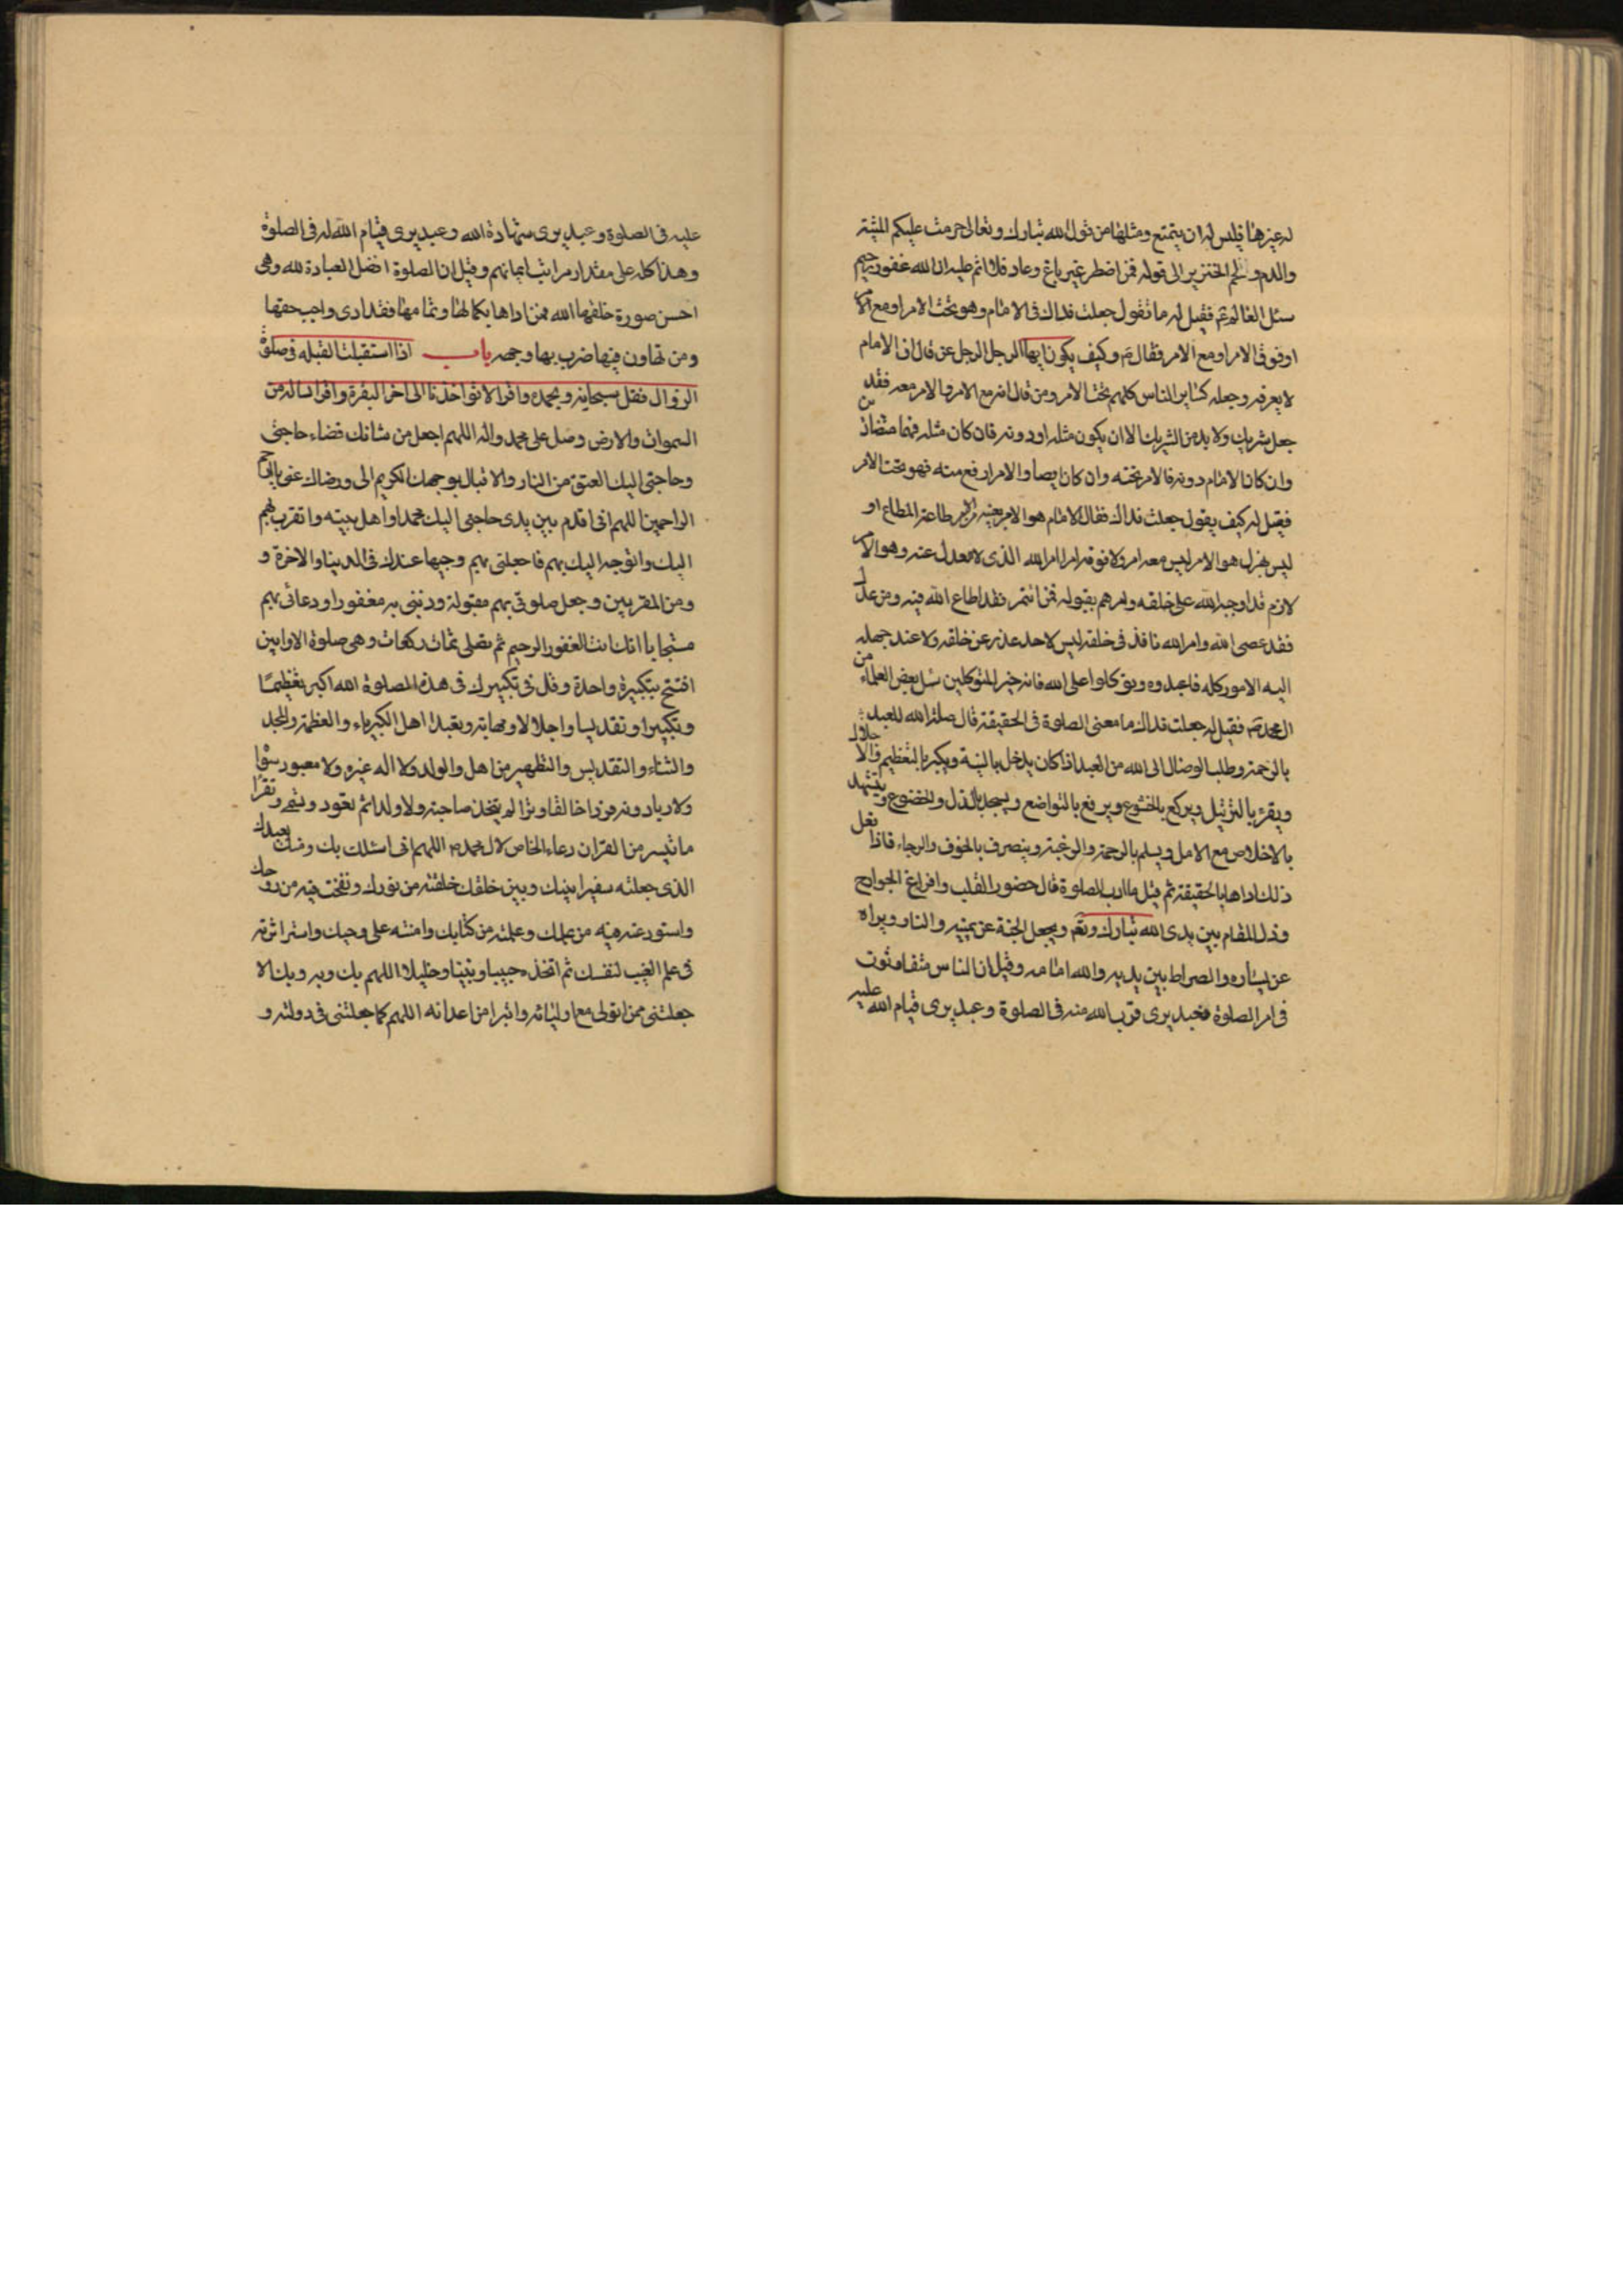 له غيرها فليس له ان يتمتع ومثلها من قول الله تبارك وتعالى حرمت عليكم الميتة
والدم ولحم الخنزير الى قوله فمن اضطر غير باغ وعاد فلا اثم عليه ان الله غفور رحيم
سئل العالم ع فقيل له ما تقول جعلت فداك في الامام وهو تحت الامر او مع الامر
او فوق الامر او مع الامر فقال ع وكيف يكون الرجل عن قال ان الامام
لا يعرفه وجعله كساير الناس كلهم تحت الامر ومن قال انه مع الامر والامر معه فقد
جعل شريك ولا بد من الشريك الا ان يكون مثله او دونه فان كان مثله فهما متضادن
وان كان الامام دونه فالامر تحته وان كان والامر ارفع منه فهو تحت الامر
فقيل له كيف يقول جعلت فداك فقال الامام هو الامر بعينه طاعته المطاع او
ليس هو الامر ليس معه امر ولا فوقه امر امر الله الذي لا معدل عنه وهو الامر
لازم قد اوجب الله على خلقه وامرهم بقبوله فمن ائتمر فقد اطاع الله فيه ومن عدل
فقد عصى الله وامر الله نافذ في خلقه ليس لاحد عذر عن خلقه ولا عند جهله
اليه الامور كله فاعبدوه وتوكلوا على الله فانه خير المتوكلين سئل بعض العلماء من
ال محمد ص فقيل له جعلت فداك ما معنى الصلوة في الحقيقة قال صلة الله للعبد
بالرحمة وطلب الوصال الى الله من العبد اذا كان يدخل بالنية ويكبر بالتعظيم والاجلال
ويقرء بالترتيل ويركع بالخشوع ويرفع بالتواضع ويسجد بالذل والخضوع ويتشهد
بالاخلاص مع الامل ويسلم بالرحمة والرغبة وينصرف بالخوف والرجاء فاذا فعل
ذلك اداها بالحقيقة ثم قيل ما ادب الصلوة قال حضور القلب وافراغ الجوارح
وذل المقام بين يدى الله تبارك وتع ويجعل الجنة عن يمينه والنار ويراه
عن يساره والصراط بين يديه والله امامه وقيل ان الناس متفاوتون
في امر الصلوة فعبد يرى قرب الله منه في الصلوة وعبد يرى قيام الله عليه
عليه في الصلوة وعبد يرى شهادة الله وعبد يرى قيام الله له في الصلوة
وهذا كله على مقدار مراتب ايمانهم وقيل ان الصلوة افضل العبادة لله وهى
احسن صورة خلقها الله فمن اداها بكمالها وتمامها فقد ادى واجب حقها
ومن تهاون فيها ضرب بها وجهه باب اذا استقبلت القبله في صلوة
الزوال فقل سبحانه وبحمده واقرا لا تؤاخذنا الى اخر البقرة واقرا يساله من
السموات والارض وصل على محمد واله اللهم اجعل من شانك قضاء حاجتى
وحاجتى اليك العتق من النار والاقبال بوجهك الكريم الى ورضاك عنى يا ارحم
الراحمين اللهم انى اقدم بين يدى حاجتى اليك محمدا واهل بيته واتقرب بهم
اليك واتوجه اليك بهم فاجعلنى بهم وجيها عندك في الدنيا والاخرة و
ومن المقربين وجعل صلوتى بهم مقبولة وذنبى به مغفورا ودعائى بهم
مستجابا انك انت الغفور الرحيم ثم تصلى ثمان ركعات وهى صلوة الاوابين
افتتح بتكبيرة واحدة وقل في تكبيرك في هذه الصلوة الله اكبر تعظيما
وتكبيرا وتقديسا واجلالا ومهابة وتعبدا اهل الكبرياء والعظمة والمجد
والثناء والتقديس والتطهير من اهل والولد ولا اله غيره ولا معبود سواه
ولا رب دونه فردا خالقا وترا لم يتخذ صاحبة ولا ولدا ثم تعوذ وتسم وتقرا
ما تيسر من القران دعاء الخاص لال محمد ص اللهم انى اسئلك بك ومنك بعبدك
الذى جعلته سفيرا بينك وبين خلقك خلقته من نورك ونفخت فيه من روحك
واستودعته فيه من علمك وعلمته من كتابك وامنته على وحيك واستاثرته
في علم الغيب لنفسك ثم اتخذه حبيبا ونبيا وخليلا اللهم بك وبه وبك الا
جعلتنى ممن اتولى مع اوليائه واتبرا من اعدائه اللهم كما جعلتنى في دولته و